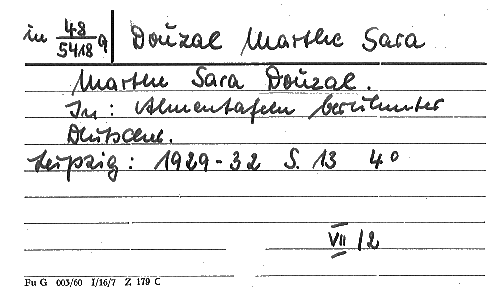 in 48/5418 q Doùzal Marthe Sara
Marthe Sara Doùzal.
In: Ahnentafeln berühmter
Deutscher.
Leipzig: 1929-32 S. 13 4°
VII/2
Fu G 003/60 I/16/7 Z 179 C